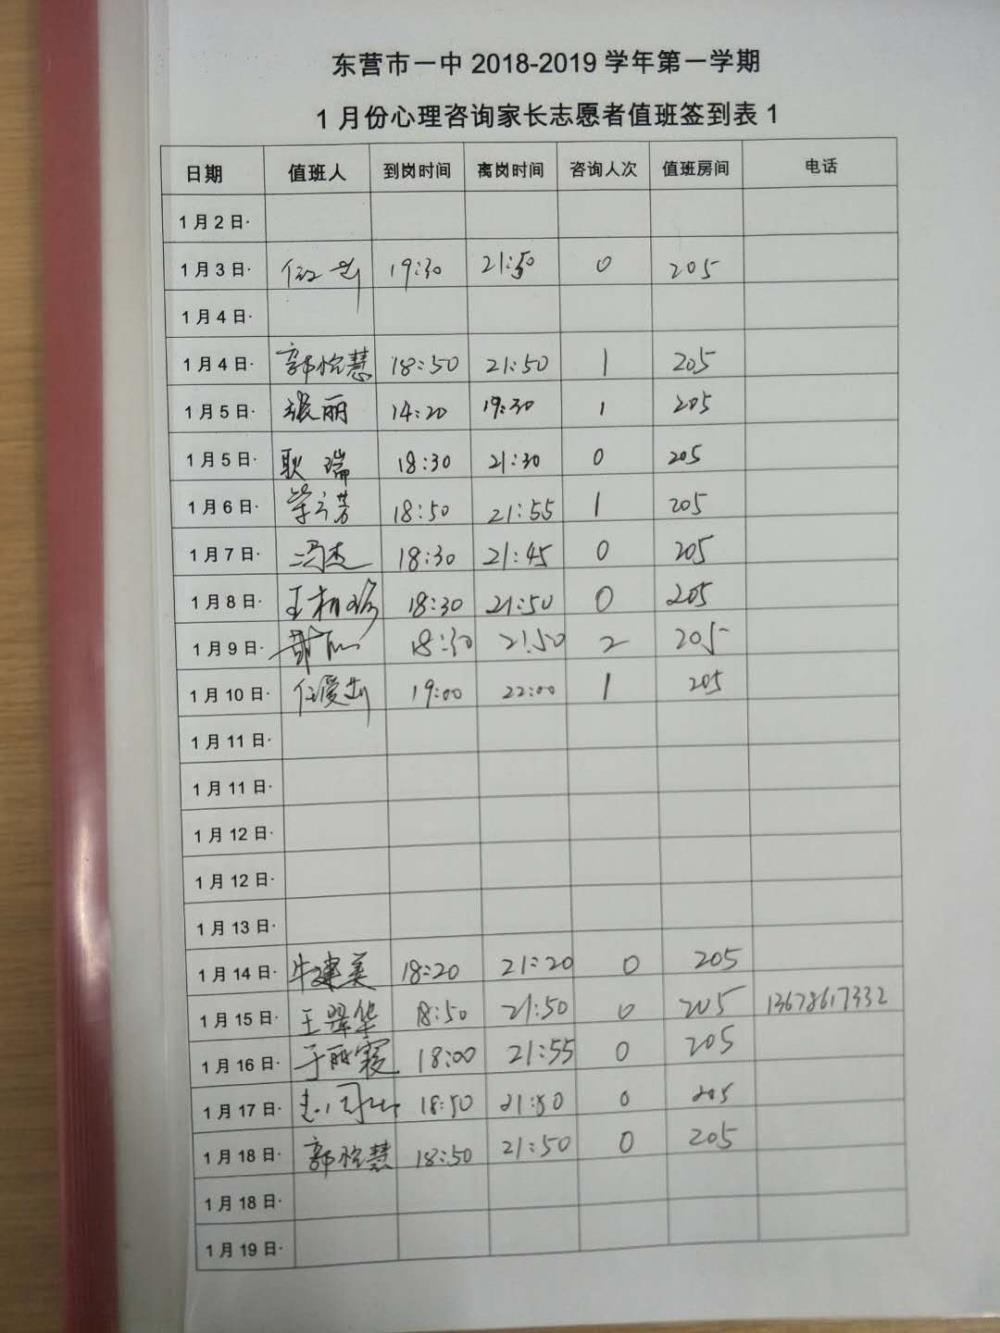 东营市一中 2018-2019 学年第一学期
1 月份心理咨询家长志愿者值班签到表 1
日期 值班人 到岗时间 离岗时间 咨询人次 值班房间 电话
1 月 2 日·
1 月 3 日· 19:30 21:50 0 205
1 月 4 日·
1 月 4 日· 郭 慧 18:50 21:50 1 205
1 月 5 日· 张丽 14:20 19:30 1 205
1 月 5 日· 耿瑞 18:30 21:30 0 205
1 月 6 日· 芳 18:50 21:55 1 205
1 月 7 日· 冯杰 18:30 21:45 0 205
1 月 8 日· 王 18:30 21:50 0 205
1 月 9 日· 18:30 21:50 2 205
1 月 10 日· 任爱 19:00 22:00 1 205
1 月 11 日·
1 月 11 日·
1 月 12 日·
1 月 12 日·
1 月 13 日·
1 月 14 日· 牛建美 18:20 21:20 0 205
1 月 15 日· 王翠华 18:50 21:50 0 205 13678617332
1 月 16 日· 于丽霞 18:00 21:55 0 205
1 月 17 日· 18:50 21:50 0 205
1 月 18 日· 郭 慧 18:50 21:50 0 205
1 月 18 日·
1 月 19 日·